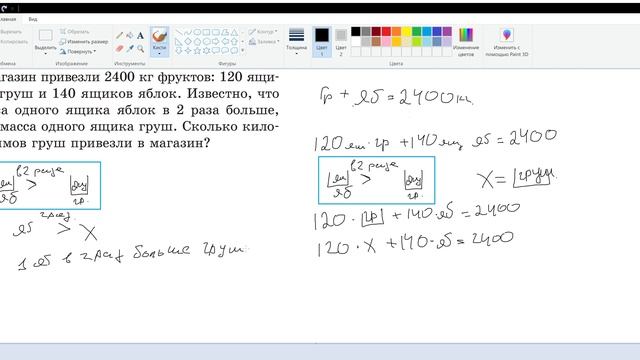 главная
Вырезать
Копировать
Выделить
Обрезать
Изменить размер
Повернуть
Кисти
Контур
Заливка
Толщина
Цвет 1
Цвет 2
Изменение цветов
Изменить с помощью Paint 3D
Изображение
Фигуры
Цвета
агазин привезли 2400 кг фруктов: 120 ящи-
груш и 140 ящиков яблок. Известно, что
са одного ящика яблок в 2 раза больше,
масса одного ящика груш. Сколько кило-
ммов груш привезли в магазин?
в 2 раза
ящ > ящ
яб гр.
2 раза
яб > X
1 яб в 2 раз больше груш
Гр + яб = 2400 кг
120 ящ · гр + 140 ящ яб = 2400
в 2 раза
ящ > ящ
яб гр.
X = груш
120 · гр + 140 · яб = 2400
120 · X + 140 · яб = 2400